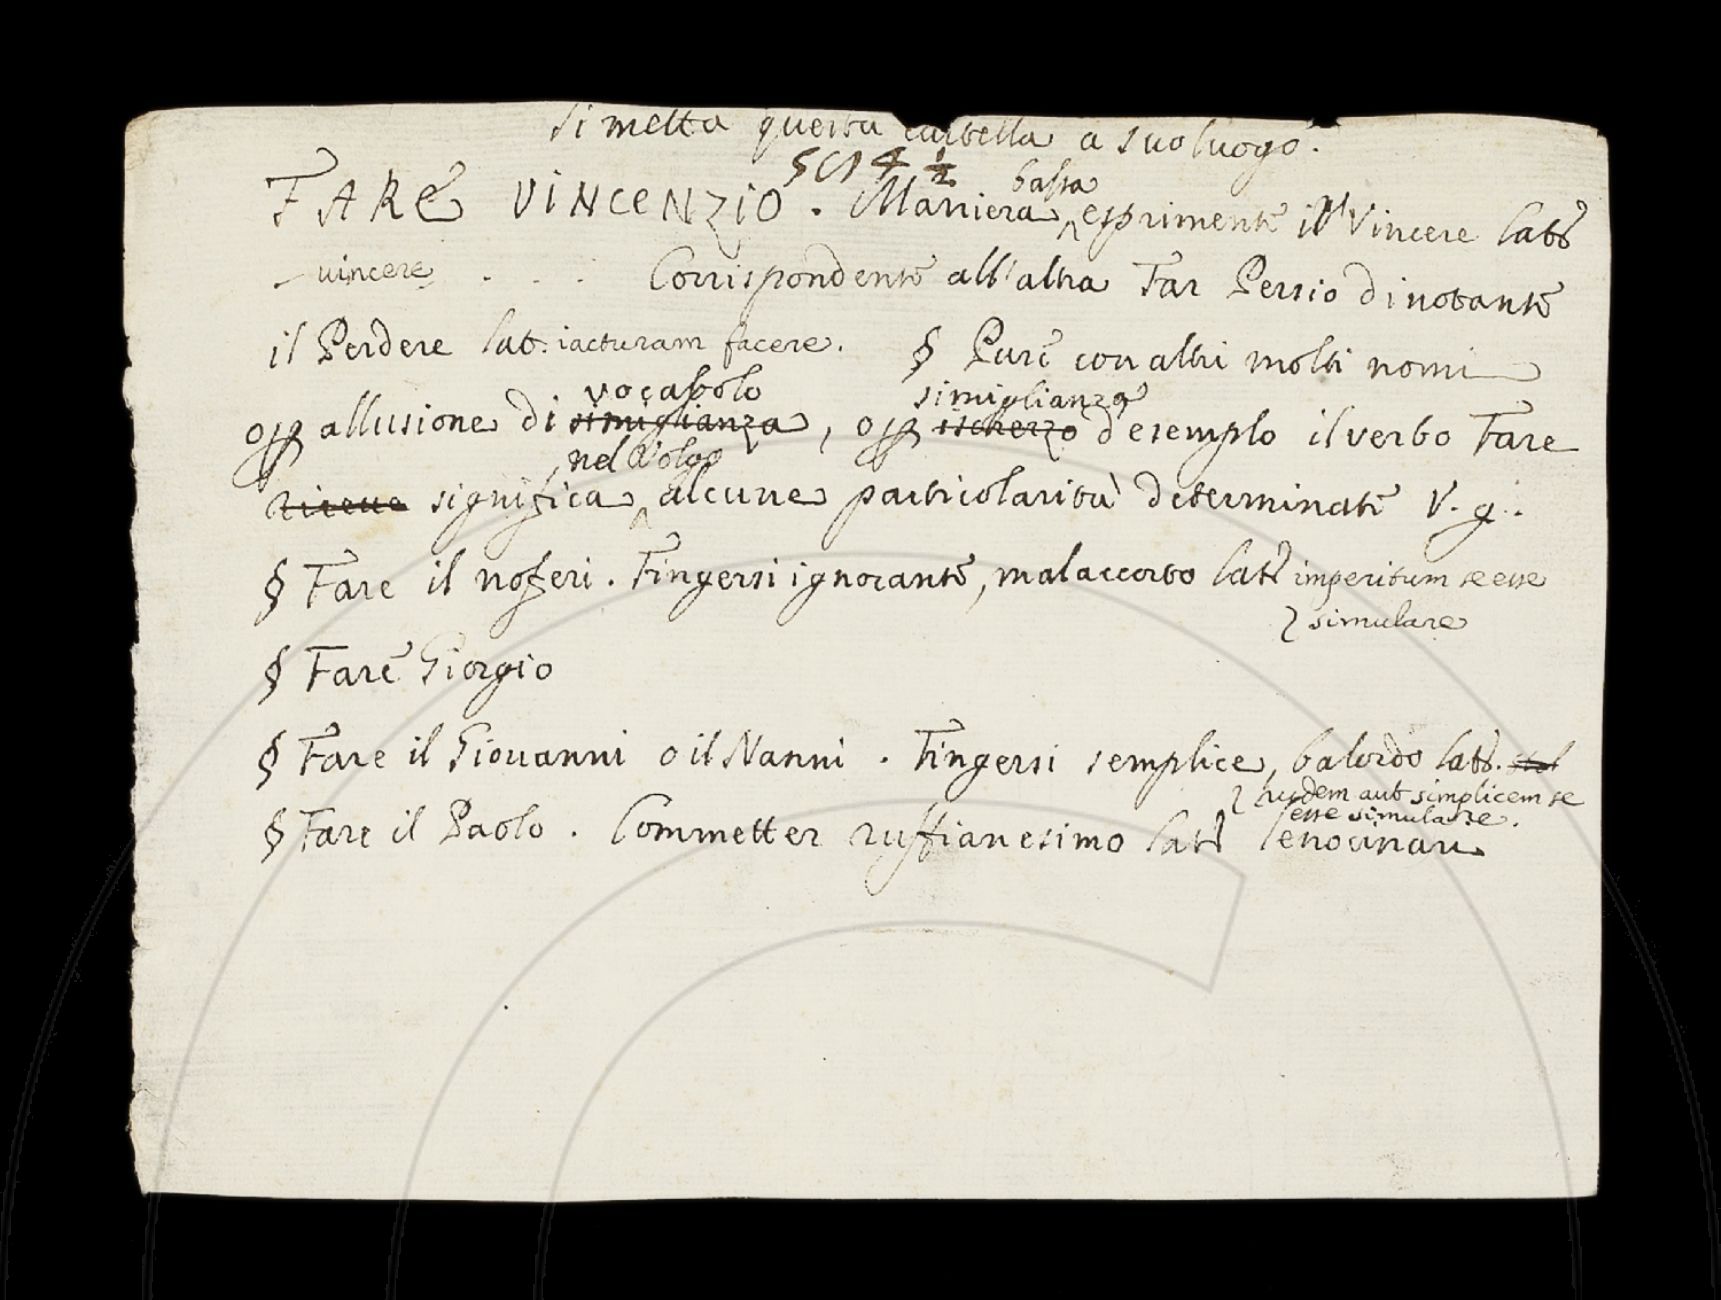 Si metta questa cartella a suo luogo.
5 C 14 ½
bassa
FARE VINCENZIO. Maniera ^ esprimente il Vincere lat.
vincere . . . Corrispondente all'altra Far Persio dinotante
il Perdere lat. iacturam facere. § Pure con altri molti nomi
vocabolo simiglianza
o p allusione di simiglianza, o p ischerzo d'esemplo il verbo Fare
nel Volgo
riceve significa ^ alcune particolarità determinate V. g.
§ Fare il noferi. Fingersi ignorante, malaccorto lat. imperitum se esse
simulare
§ Fare Giorgio
§ Fare il Giovanni o il Nanni. Fingersi semplice, balordo lat. stol
rudem aut simplicem se
esse simulare.
§ Fare il Paolo. Commetter ruffianesimo lat. lenocinari